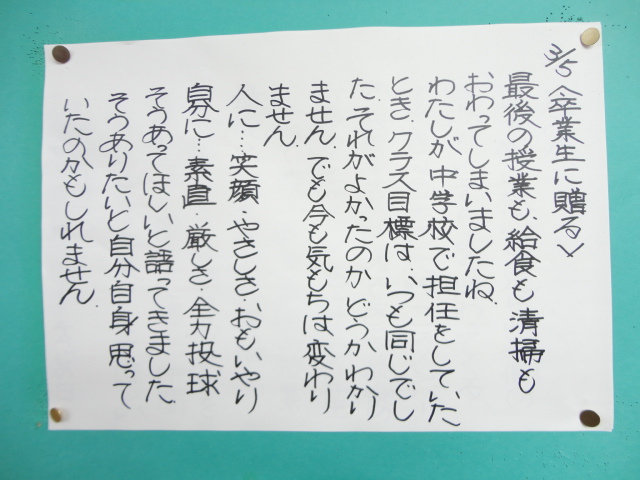 3/5〈卒業生に贈る〉
最後の授業も、給食も清掃も
おわってしまいましたね。
わたしが中学校で担任をしていた
とき、クラス目標は、いつも同じでし
た。それがよかったのかどうかわかり
ません。でも今も気もちは変わり
ません。
人に…笑顔・やさしさ・おもいやり
自分に…素直・厳しさ・全力投球
そうあってほしいと語ってきました。
そうありたいと自分自身思って
いたのかもしれません。